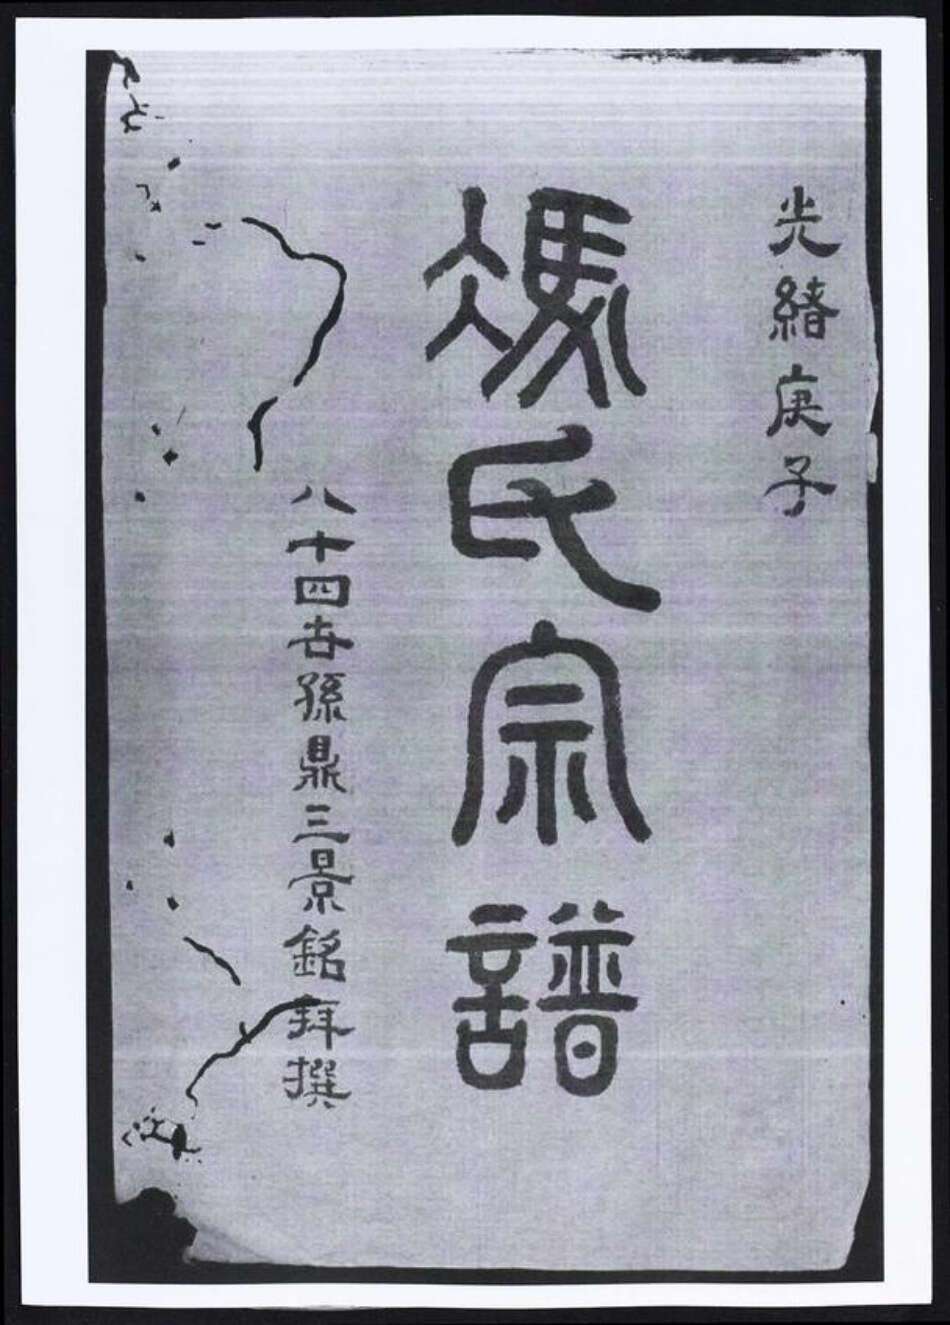 光緒庚子
馮氏宗譜
八十四世孫鼎三景銘拜撰